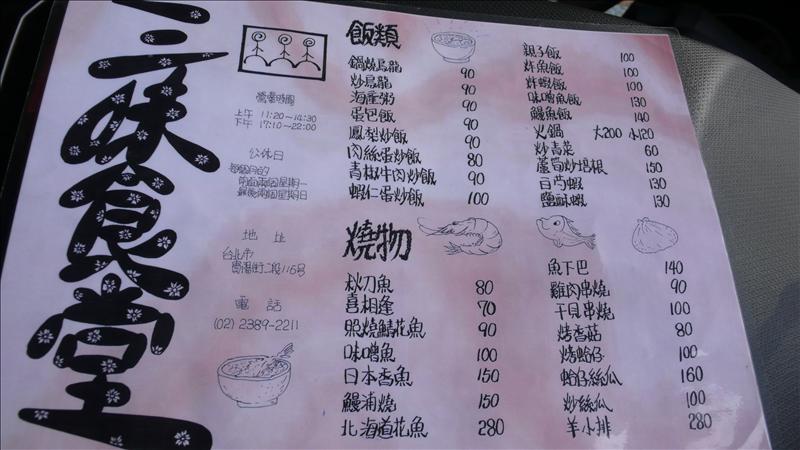 三味食堂
營業時間
上午 11:20～14:30
下午 17:10～22:00
公休日
每個月的
前面兩個星期一
最後兩個星期日
地址
台北市
貴陽街二段116号
電話
(02) 2389-2211
飯類
鍋燒烏龍 90
炒烏龍 90
海產粥 90
蛋包飯 90
鳳梨炒飯 90
肉絲蛋炒飯 80
青椒牛肉炒飯 90
蝦仁蛋炒飯 100
親子飯 100
炸魚飯 100
炸蝦飯 100
味噌魚飯 130
鰻魚飯 140
火鍋 大200 小120
炒青菜 60
蘆筍炒培根 150
百芍蝦 130
鹽酥蝦 130
燒物
秋刀魚 80
喜相逢 70
照燒鯖花魚 90
味噌魚 100
日本香魚 150
鰻浦燒 150
北海道花魚 280
魚下巴 140
雞肉串燒 90
干貝串燒 100
烤香菇 80
烤蛤仔 100
蛤仔絲瓜 160
炒絲瓜 100
羊小排 280